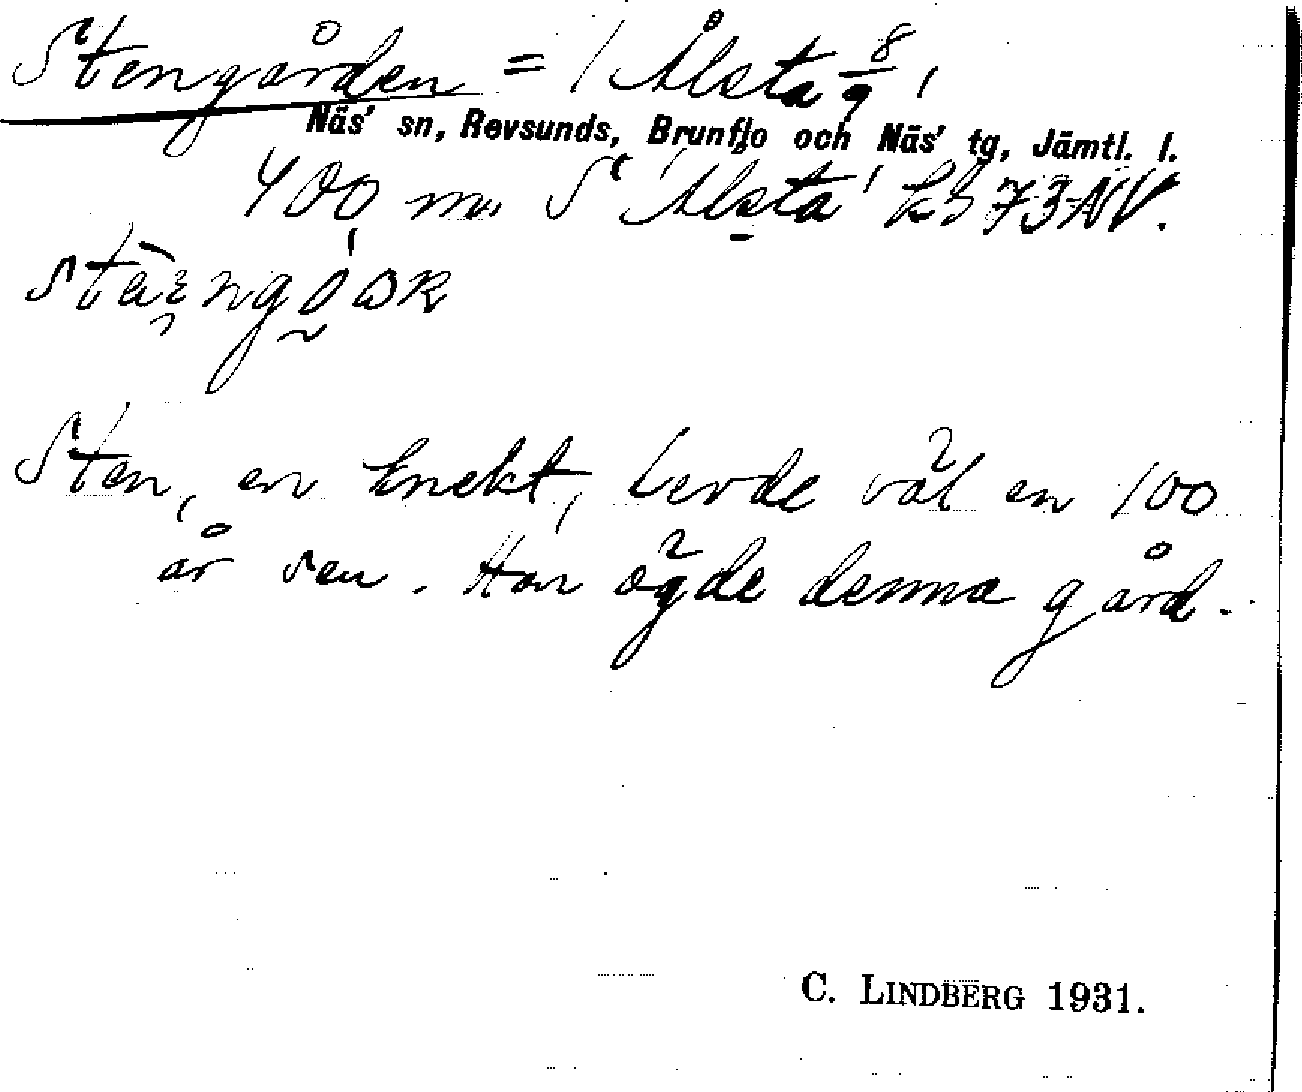 Stengården = / Ålsta 8/9 /
Näs' sn, Revsunds, Brunflo och Näs' tg, Jämtl. l.
400 m. S 'Ålsta' kb 73 NV.
Sten, en knekt, levde väl en 100
år sen. Han ägde denna gård.
C. LINDBERG 1931.